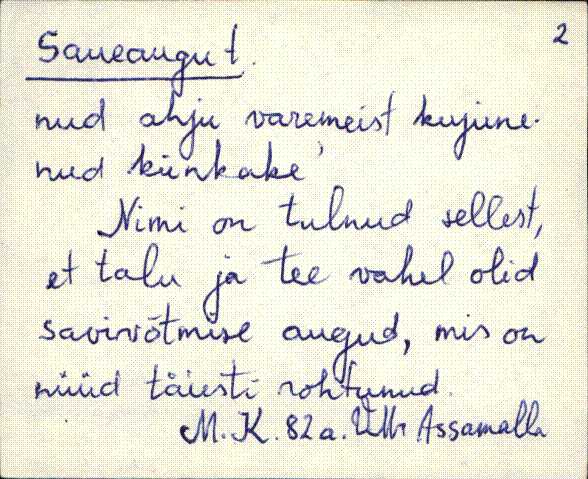 Saueaugu t.
2
nud ahju varemeist kujune-
nud künkake'
Nimi on tulnud sellest,
et talu ja tee vahel olid
savivõtmise augud, mis on
nüüd täiesti rohtunud.
M. K. 82 a. Assamalla